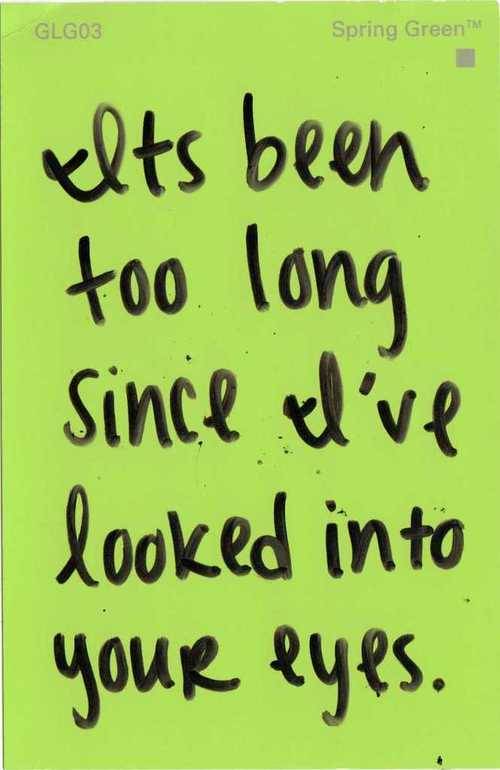 GLG03
Spring Green™
Its been
too long
since I've
looked into
your eyes.